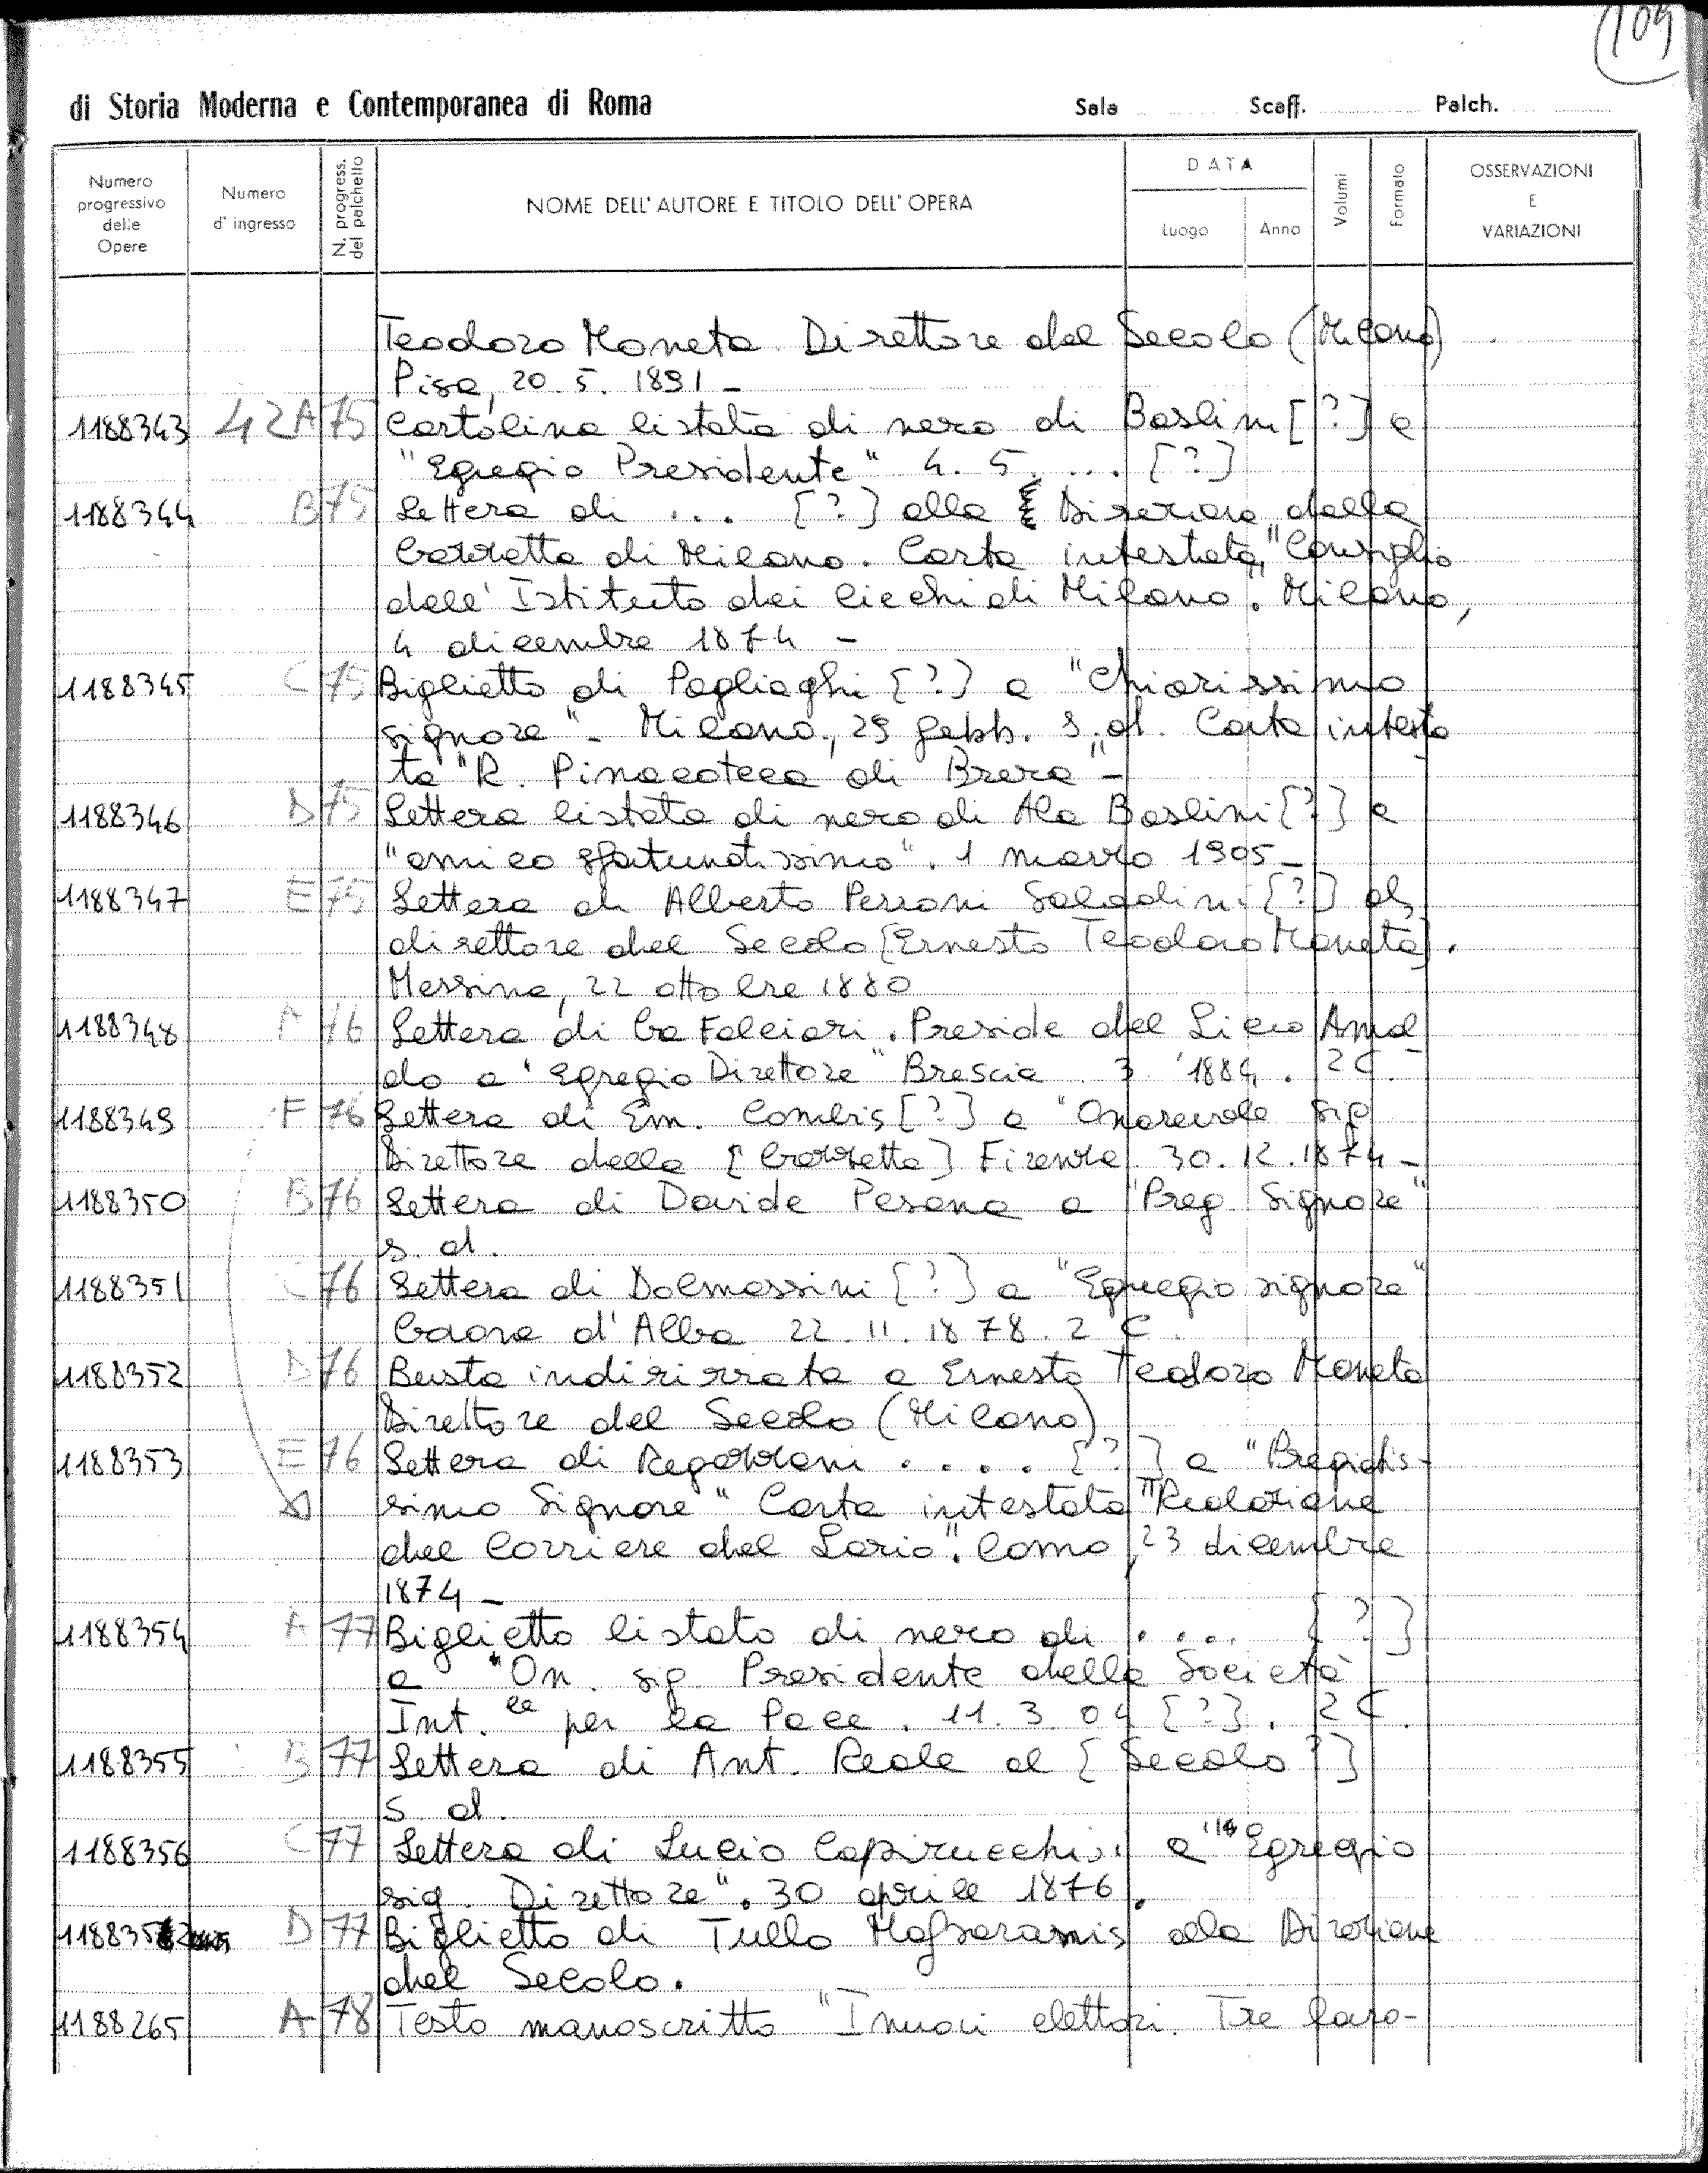 109
di Storia Moderna e Contemporanea di Roma Sala Scaff. Palch.
Numero progressivo delle Opere Numero d'ingresso N. progress. del palchetto NOME DELL'AUTORE E TITOLO DELL'OPERA DATA Luogo Anno Volumi Formato OSSERVAZIONI E VARIAZIONI
Teodoro Moneta Direttore del Secolo (Milano)
Pisa, 20.5.1891 -
1188343 42 A 75 Cartolina listata di nero di Baslini [?] a
"Egregio Presidente" 4.5.... [?]
1188344 B 75 Lettera di ... [?] alla Direzione della
Gazzetta di Milano. Carta intestata "Consiglio
dell'Istituto dei Ciechi di Milano. Milano,
4 dicembre 1874 -
1188345 C 75 Biglietto di Pogliaghi [?] a "Chiarissimo
signore" - Milano, 29 gebb. s.d. Carta intesta
ta "R. Pinacoteca di Brera" -
1188346 D 75 Lettera listata di nero di Ala Baslini [?] a
"amico sfortunatissimo". 1 marzo 1905 -
1188347 E 75 Lettera di Alberto Perroni [?] al
direttore del Secolo [Ernesto Teodoro Moneta].
Messina, 22 ottobre 1880
1188348 A 76 Lettera di Falciari. Preside del Liceo Arnal
do a "Egregio Direttore" Brescia 3 1884. 2 C.
1188349 F 76 Lettera di Em. Combis [?] a "Onorevole Sig
Direttore della [Gazzetta] Firenze 30.12.1874 -
1188350 B 76 Lettera di Davide Pesana a "Preg Signore"
s.d.
1188351 C 76 Lettera di Dolmassini [?] a "Egregio signore"
d'Alba 22.11.1878. 2 C.
1188352 D 76 Busta indirizzata a Ernesto Teodoro Moneta
Direttore del Secolo (Milano)
1188353 E 76 Lettera di Regazzoni .... [?] a "Pregiatis-
simo Signore" Carta intestata "Redazione
del Corriere del Lario". Como, 23 dicembre
1874 -
1188354 A 77 Biglietto listato di nero di .... [?]
a "On. sig. Presidente della Società
Int.le per la Pace. 11.3.04 [?]. 2 C.
1188355 B 77 Lettera di Ant. Reale al [Secolo?]
s.d.
1188356 C 77 Lettera di Lucio Capirucchi a "Egregio
sig. Direttore". 30 aprile 1876.
D 77 Biglietto di Tullo Massarani alla Direzione
del Secolo.
1188265 A 78 Testo manoscritto "I nuovi elettori. Tre